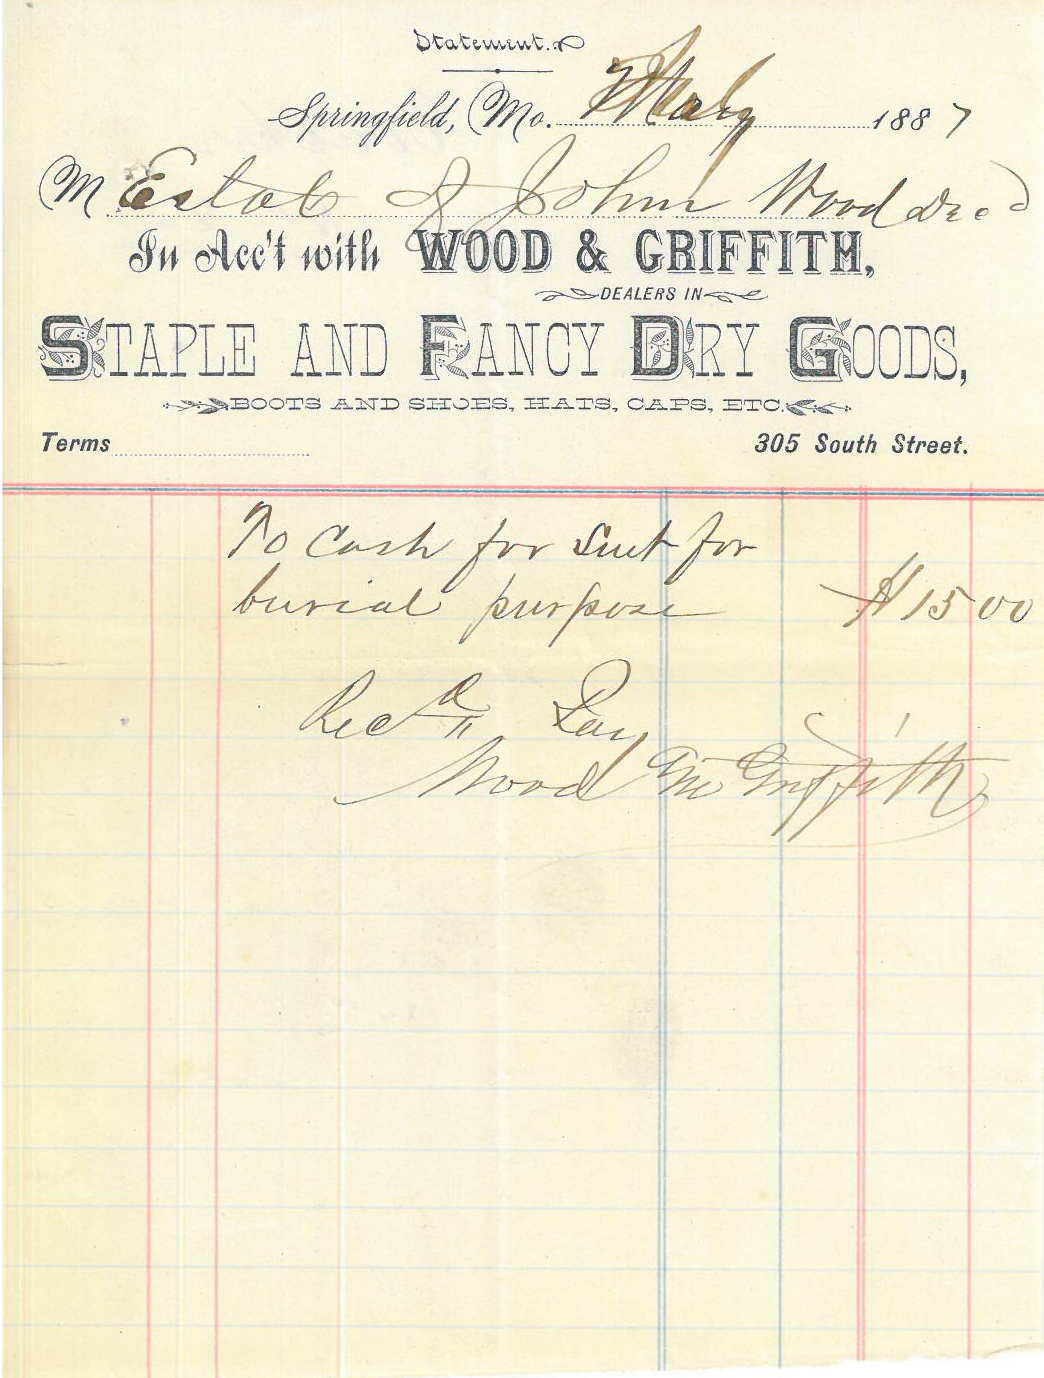 Statement.
Springfield, Mo. 1887
M Estate of John Wood Dec'd
In Acc't with WOOD & GRIFFITH,
DEALERS IN
STAPLE AND FANCY DRY GOODS,
BOOTS AND SHOES, HATS, CAPS, ETC.
Terms
305 South Street.
To Cash for Suit for
burial purpose $15 00
Recd Pay
Wood Griffith